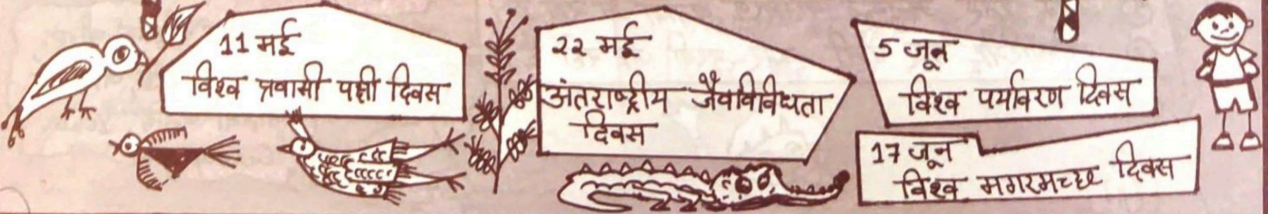 ११ मई
विश्व प्रवासी पक्षी दिवस
२२ मई
अंतराष्ट्रीय जैवविविधता
दिवस
5 जून
विश्व पर्यावरण दिवस
17 जून
विश्व मगरमच्छ दिवस